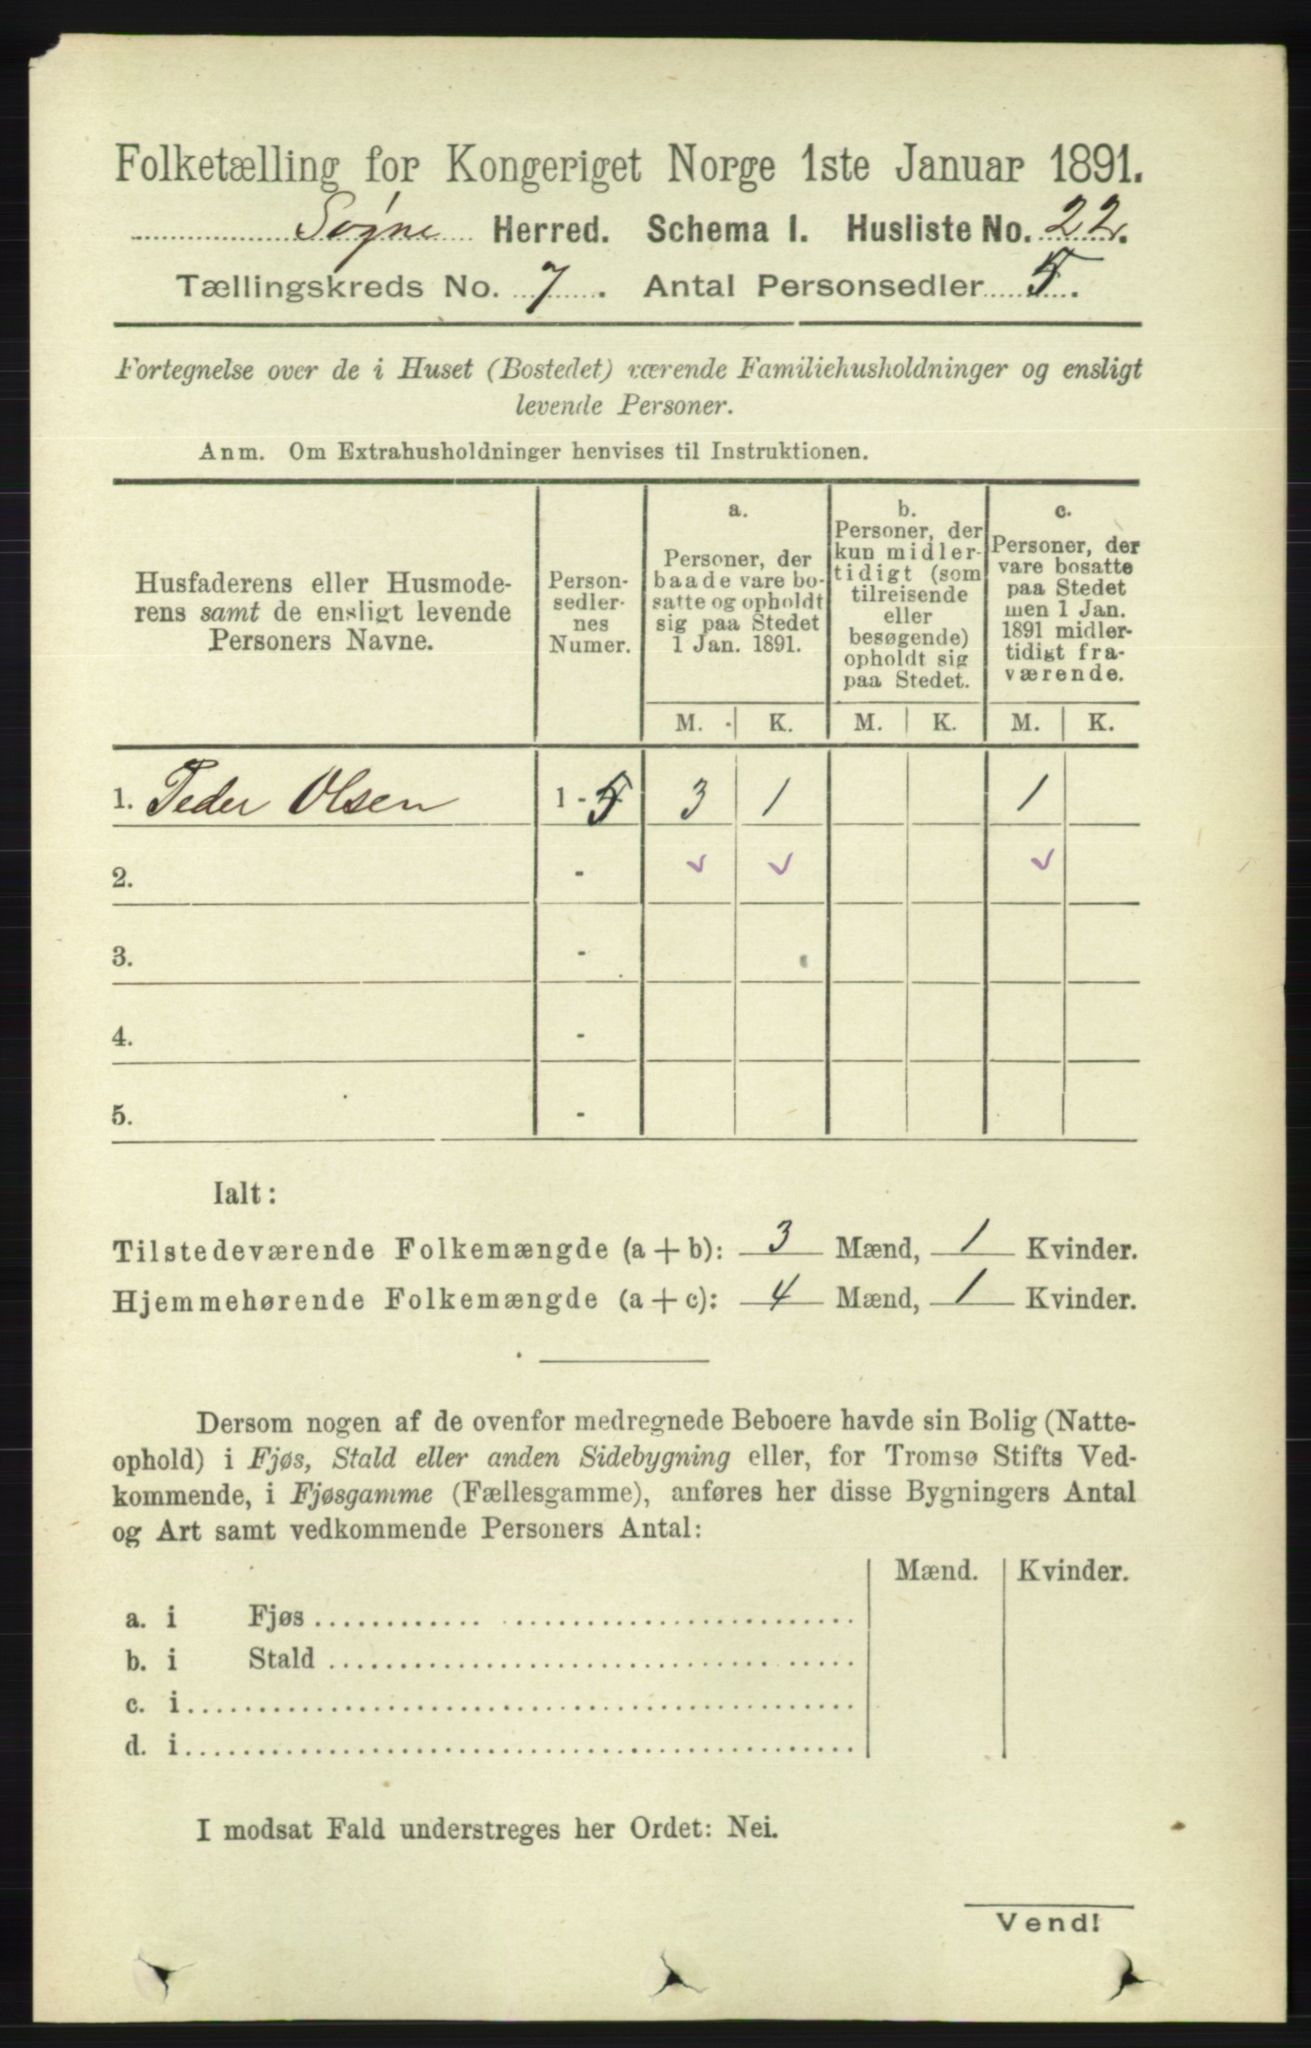 Folketælling for Kongeriget Norge 1ste Januar 1891.
Søgne Herred. Schema I. Husliste No. 22.
Tællingskreds No. 7. Antal Personsedler 5.
Fortegnelse over de i Huset (Bostedet) værende Familiehusholdninger og ensligt
levende Personer.
Anm. Om Extrahusholdninger henvises til Instruktionen.
Husfaderens eller Husmode-
rens samt de ensligt levende
Personers Navne.
Person-
sedler-
nes
Numer.
a.
Personer, der
baade vare bo-
satte og opholdt
sig paa Stedet
1 Jan. 1891.
b.
Personer, der
kun midler-
tidigt (som
tilreisende
eller
besøgende)
opholdt sig
paa Stedet.
c.
Personer, der
vare bosatte
paa Stedet
men 1 Jan.
1891 midler-
tidigt fra-
værende.
M. K. M. K. M. K.
1. Peder Olsen 1 - 5 3 1 1
2. - ✓ ✓ ✓
3. -
4. -
5. -
Ialt:
Tilstedeværende Folkemængde (a + b): 3 Mænd, 1 Kvinder.
Hjemmehørende Folkemængde (a + c): 4 Mænd, 1 Kvinder.
Dersom nogen af de ovenfor medregnede Beboere havde sin Bolig (Natte-
ophold) i Fjøs, Stald eller anden Sidebygning eller, for Tromsø Stifts Ved-
kommende, i Fjøsgamme (Fællesgamme), anføres her disse Bygningers Antal
og Art samt vedkommende Personers Antal:
Mænd. Kvinder.
a. i Fjøs
b. i Stald
c. i
d. i
I modsat Fald understreges her Ordet: Nei.
Vend!